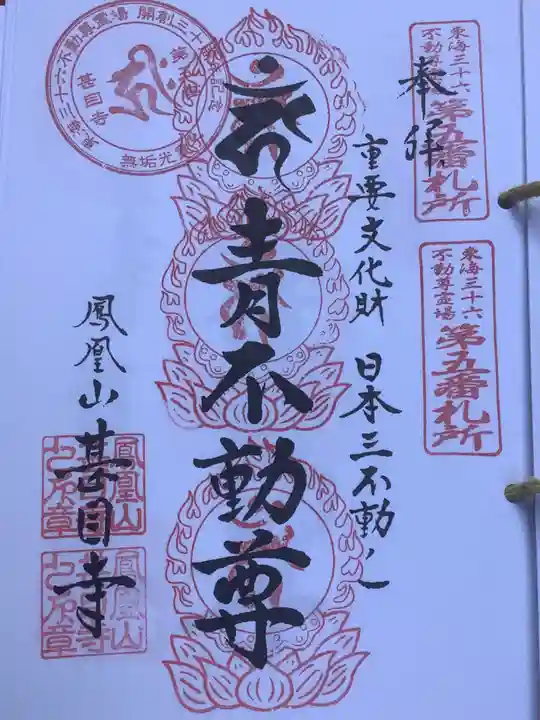 東海三十六
不動尊霊場
第五番札所
東海三十六
不動尊霊場
第五番札所
奉拝
重要文化財 日本三不動ノ一
青不動尊
鳳凰山
甚目寺
東海三十六不動尊霊場 開創三十
甚目寺
無垢光
鳳凰山
鳳凰山